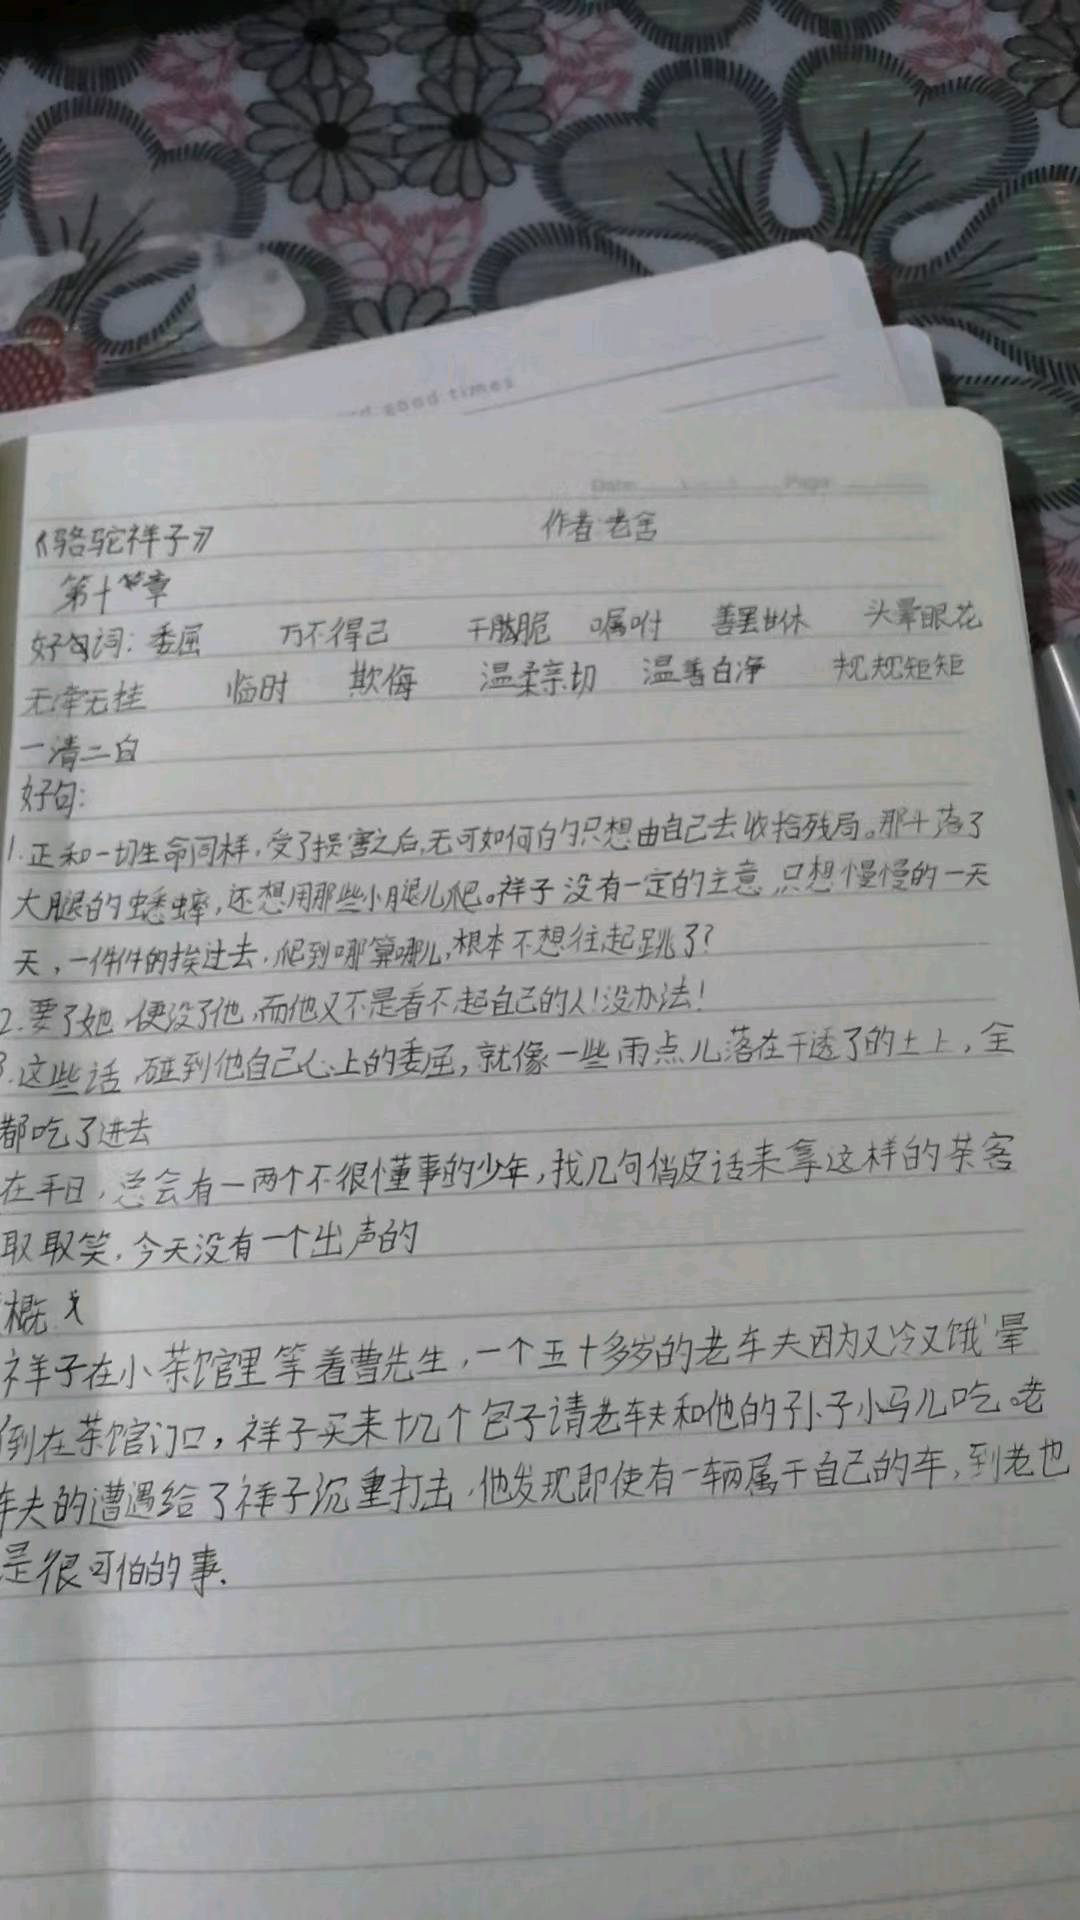 good times
Date Page
《骆驼祥子》 作者:老舍
第十章
好句词：委屈 万不得己 干脆 嘱咐 善罢甘休 头晕眼花
无牵无挂 临时 欺侮 温柔亲切 温善白净 规规矩矩
一清二白
好句：
1.正和一切生命同样,受了损害之后,无可如何的只想由自己去收拾残局。那斗落了
大腿的蟋蟀,还想用那些小腿儿爬。祥子没有一定的主意,只想慢慢的一天
天,一件件的挨过去,爬到哪算哪儿,根本不想往起跳了?
2.要了她,便没了他,而他又不是看不起自己的人!没办法!
3.这些话,碰到他自己心上的委屈,就像一些雨点儿落在干透了的土上,全
都吃了进去
在平日,总会有一两个不很懂事的少年,找几句俏皮话来拿这样的茶客
取取笑,今天没有一个出声的
概
祥子在小茶馆里等着曹先生,一个五十多岁的老车夫因为又冷又饿晕
倒在茶馆门口,祥子买来十几个包子请老车夫和他的孙子小马儿吃。老
车夫的遭遇给了祥子沉重打击,他发现即使有一辆属于自己的车,到老也
是很可怕的事.